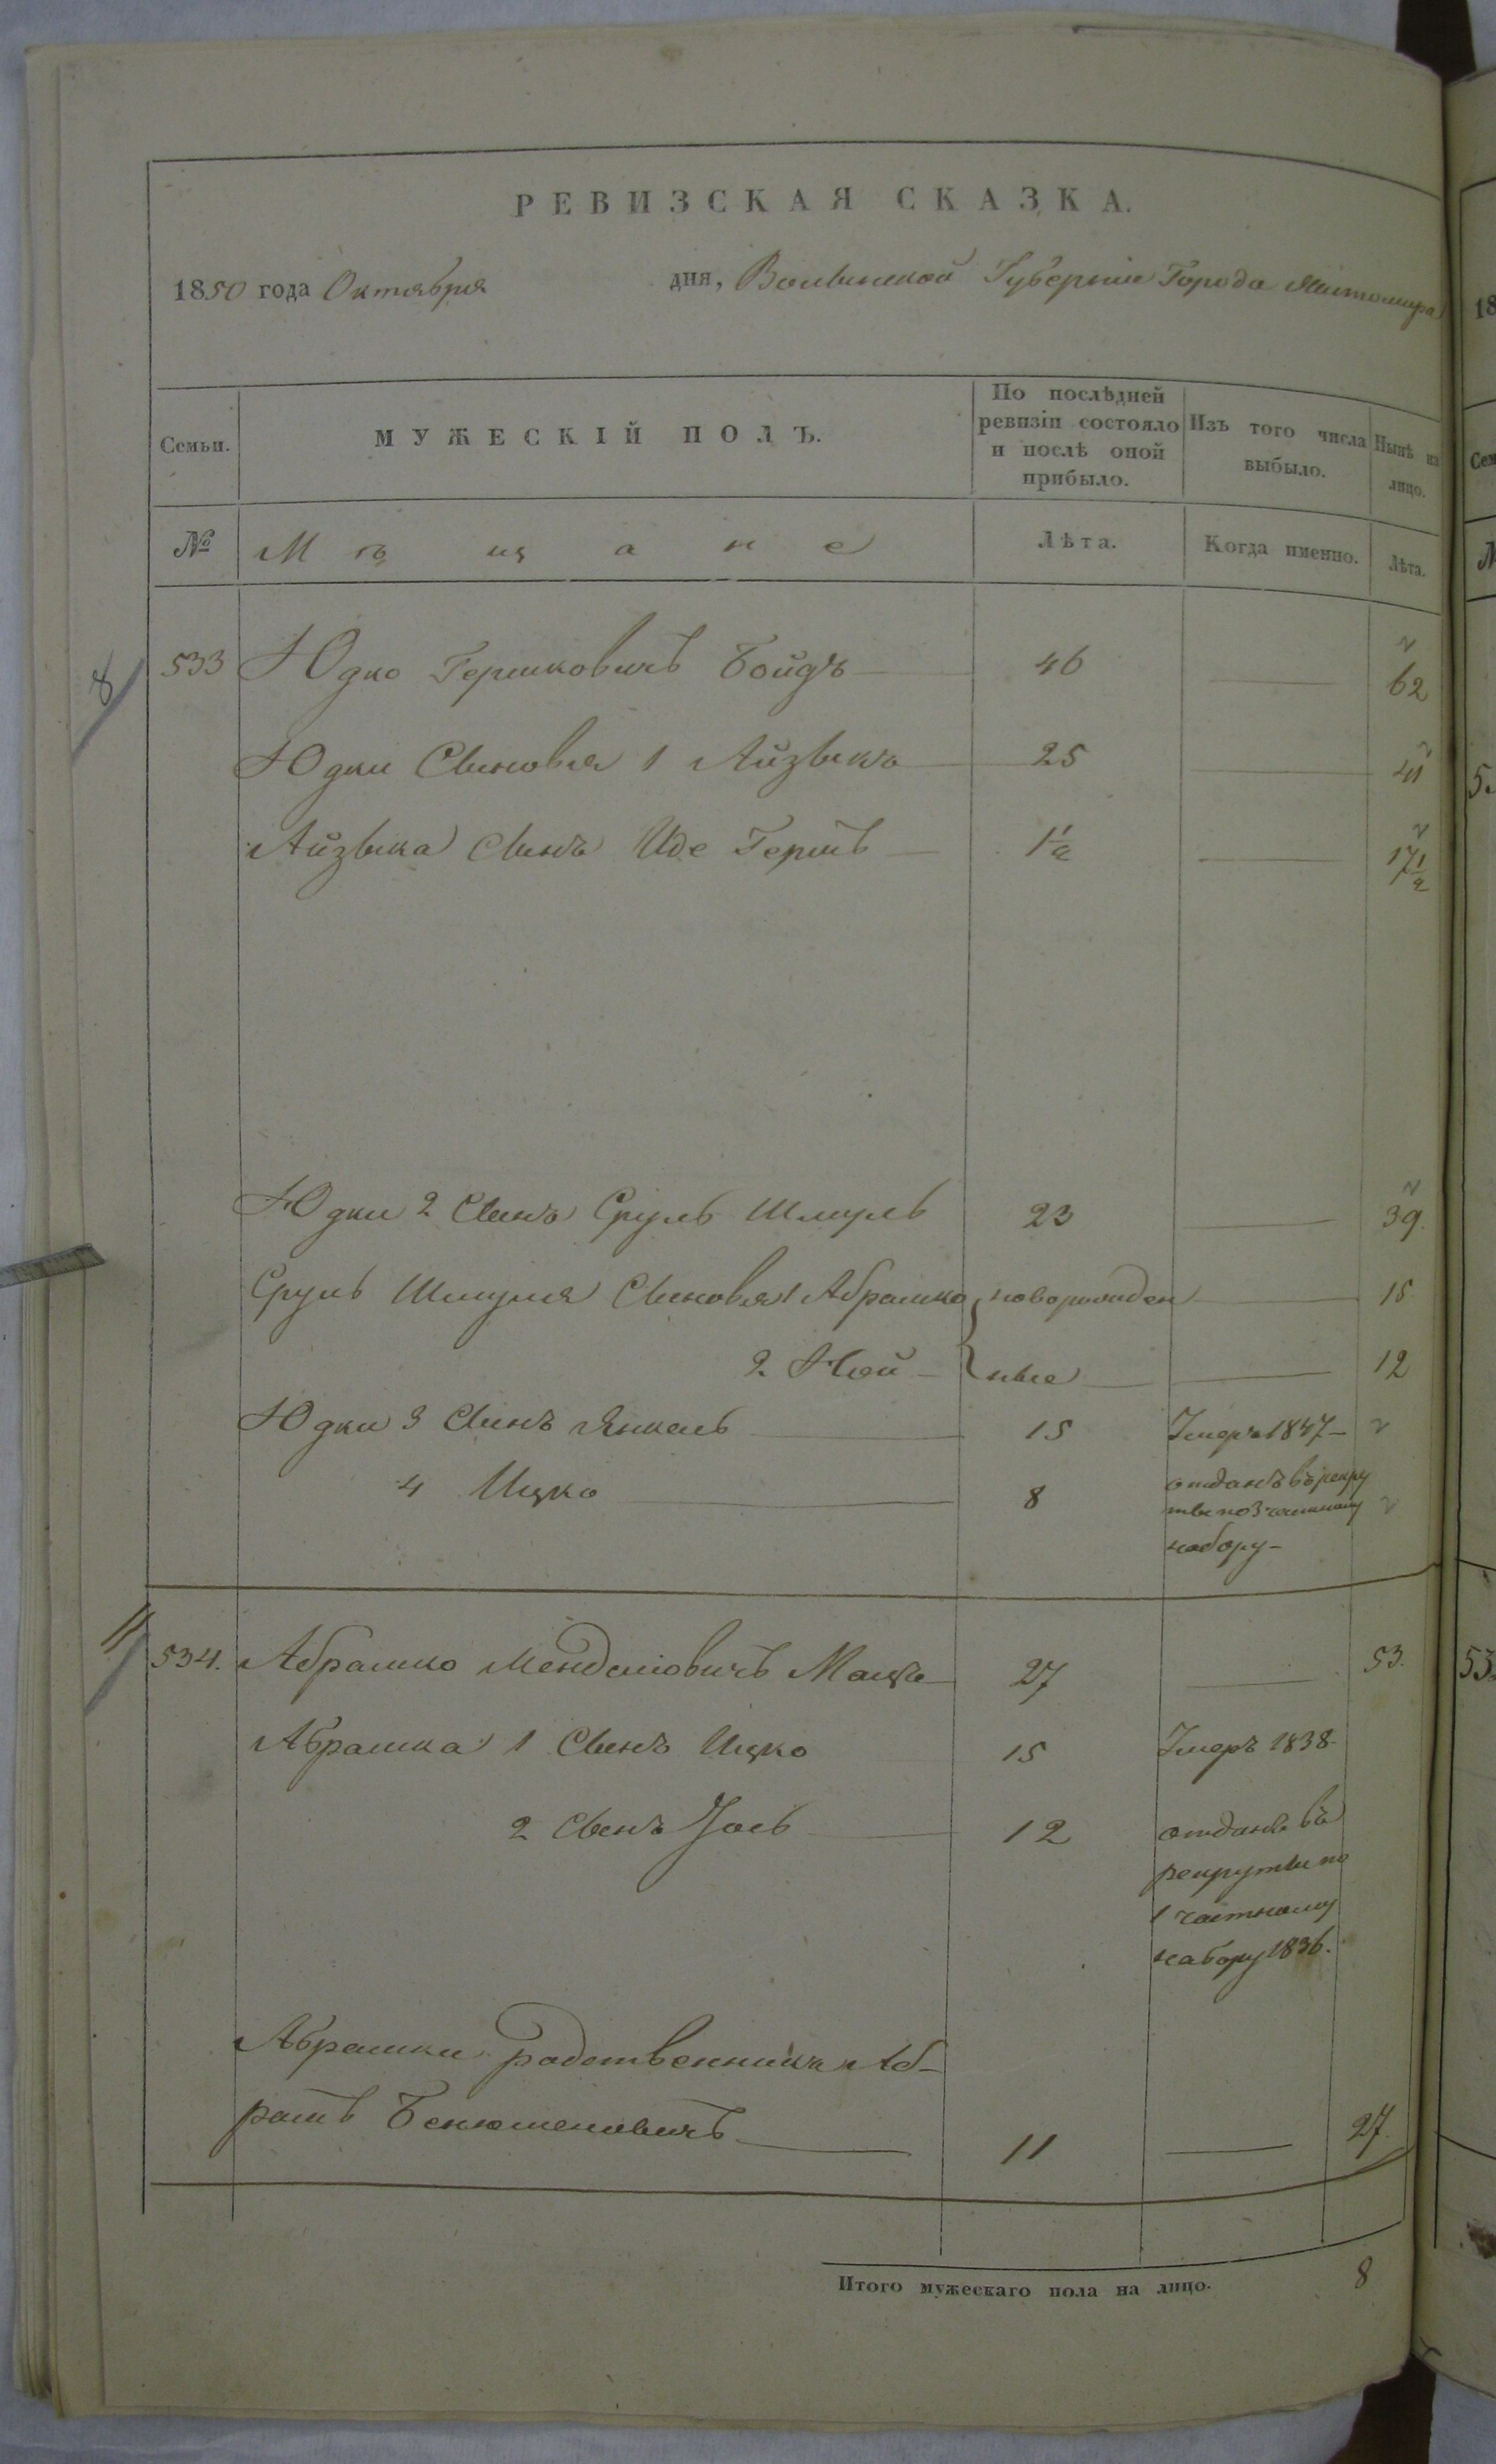 РЕВИЗСКАЯ СКАЗКА.
1850 года Октября дня, Волынской Губернии Города Житомира
Семьи.
МУЖЕСКІЙ ПОЛЪ.
По послѣдней ревизіи состояло и послѣ оной прибыло.
Изъ того числа выбыло.
Нынѣ на лицо.
№ Мѣщане Лѣта. Когда именно. Лѣта.
8
533 Юдко Гершковичъ Бойдъ 46 — 62
Юдки Сыновья 1 Айзыкъ 25 — 41
Айзыка Сынъ Иде Гершъ 1½ — 17½
Юдки 2 Сынъ Сруль Шмуль 23 — 39.
Сруль Шмуля Сыновья 1 Абрамко новорожден — 15
2. Ной ные — 12
Юдки 3 Сынъ Янкель 15 Умеръ 1847 —
4 Ицко 8 отданъ въ рекру
ты по 3 частному
набору —
11
534. Абрамко Мендалiовичъ 27 — 53.
Абрамка 1 Сынъ Ицко 15 Умеръ 1838.
2 Сынъ 12 отданъ въ
рекруты по
1 частному
набору 1836.
Абрамки родственникъ Аб-
рамъ 11 — 27.
Итого мужескаго пола на лицо. 8